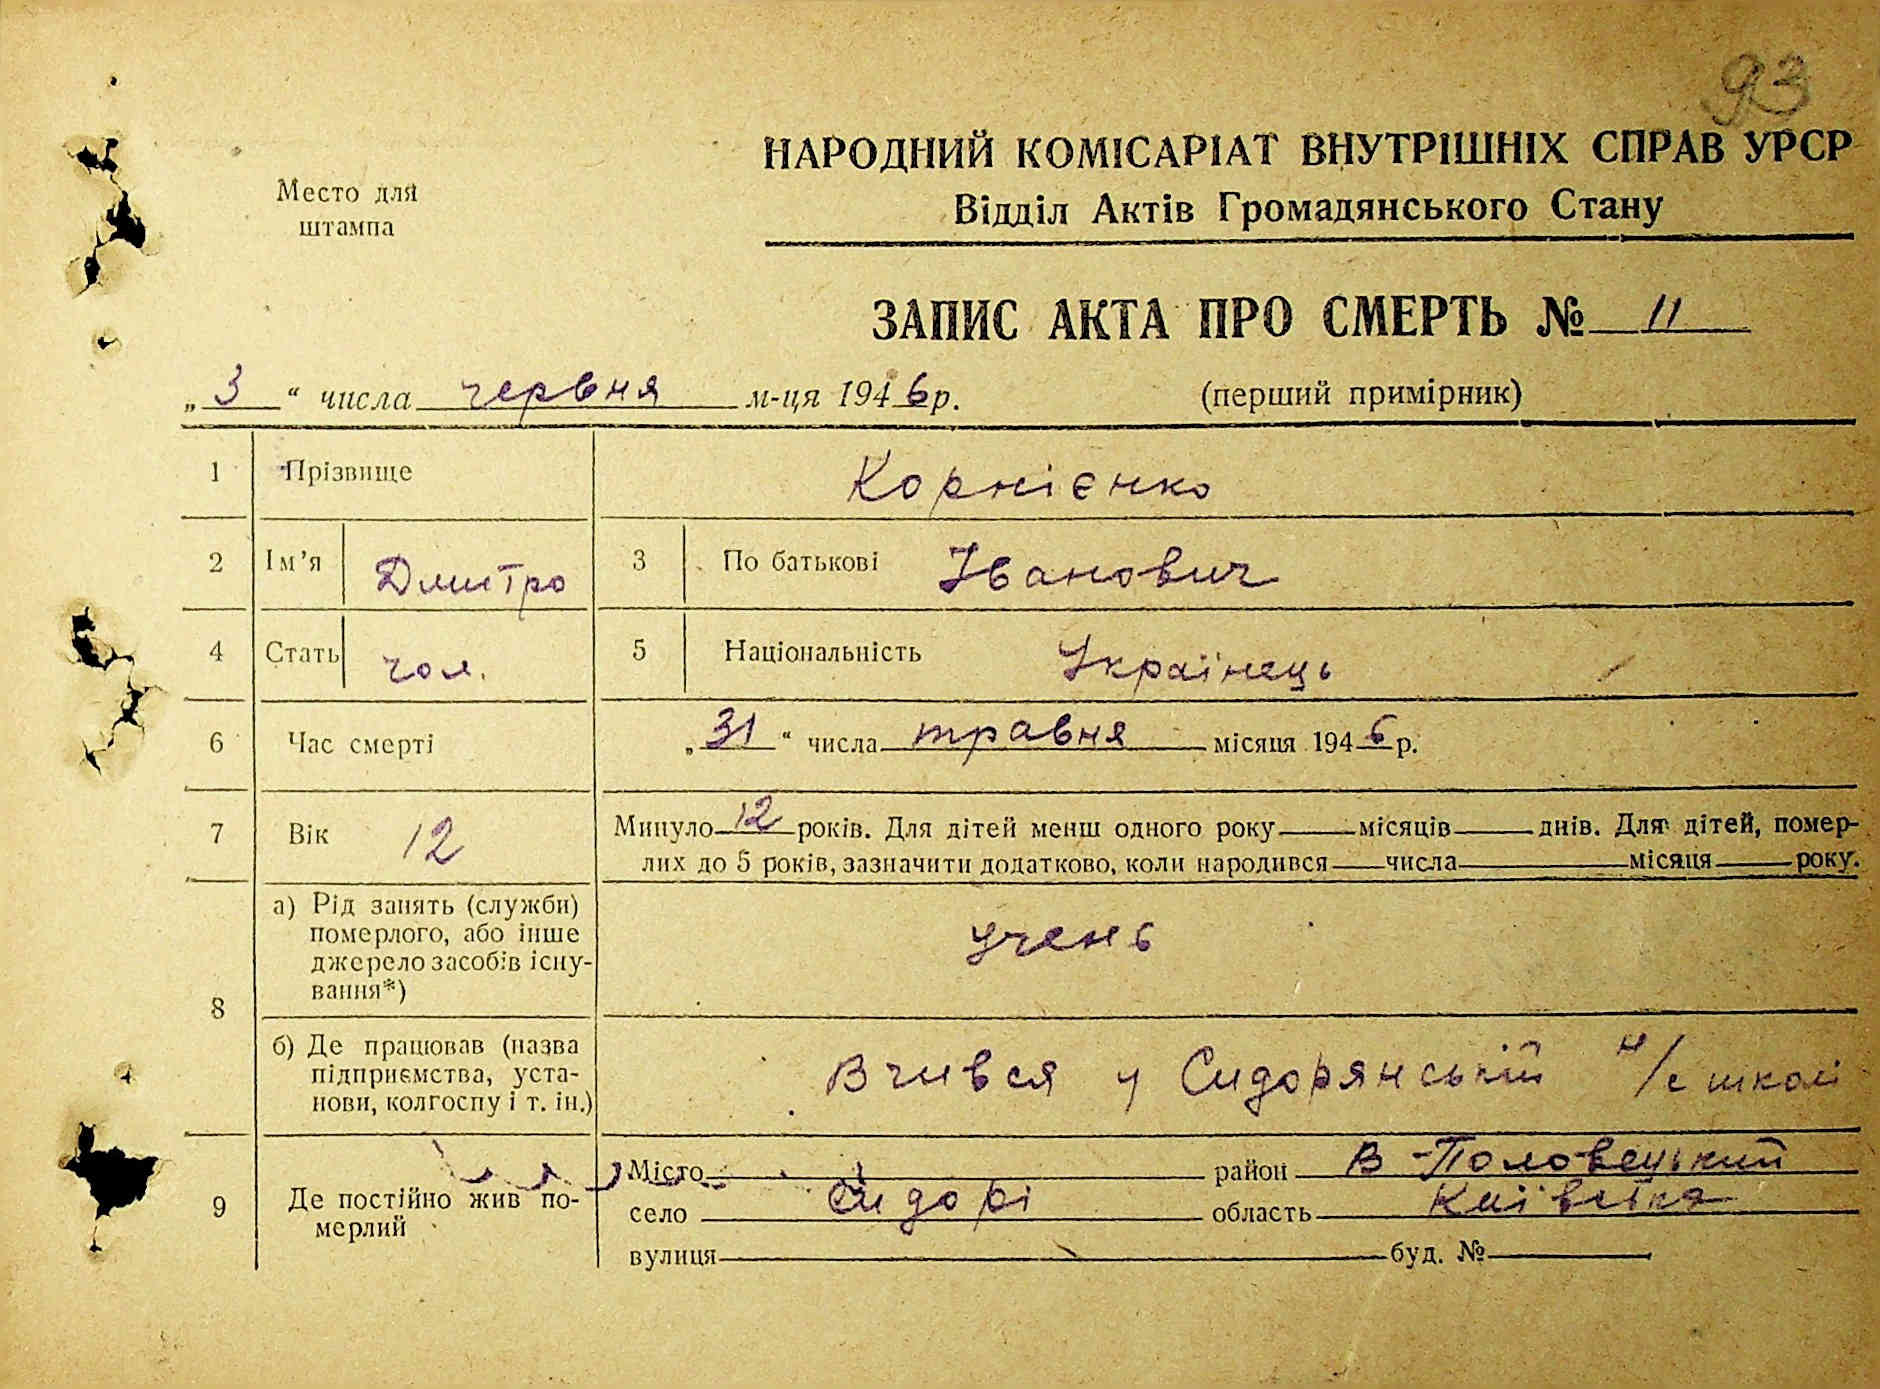 93
НАРОДНИЙ КОМІСАРІАТ ВНУТРІШНІХ СПРАВ УРСР
Место для
штампа
Відділ Актів Громадянського Стану
ЗАПИС АКТА ПРО СМЕРТЬ № 11
„3“ числа червня м-ця 1946 р. (перший примірник)
1 Прізвище Корнієнко
2 Ім’я Дмитро 3 По батькові Іванович
4 Стать чол. 5 Національність Українець
6 Час смерті „31“ числа травня місяця 1946 р.
7 Вік 12 Минуло 12 років. Для дітей менш одного року місяців днів. Для дітей, помер-
лих до 5 років, зазначити додатково, коли народився числа місяця року.
8 а) Рід занять (служби)
померлого, або інше
джерело засобів існу-
вання*) учень
б) Де працював (назва
підприємства, уста-
нови, колгоспу і т. ін.) Вчився у Сидорянській н/с школі
9 Де постійно жив по-
мерлий
Місто район В-Половецький
село Сидорі область Київська
вулиця буд. №